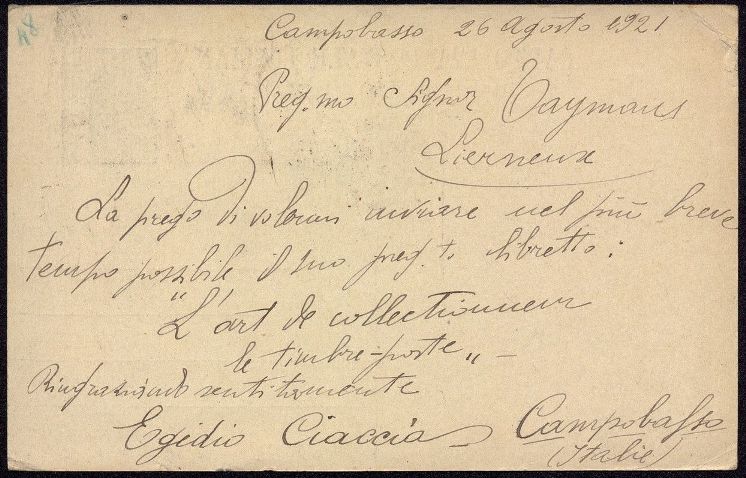 48
Campobasso 26 Agosto 1921
Preg.mo Signor Taymans
Lierneux
La prego di volermi inviare nel più breve
tempo possibile il suo preg.to libretto:
"L'art de collectionneur
le timbre-poste" -
Ringraziando sentitamente
Egidio Ciaccia Campobasso
(Italie)